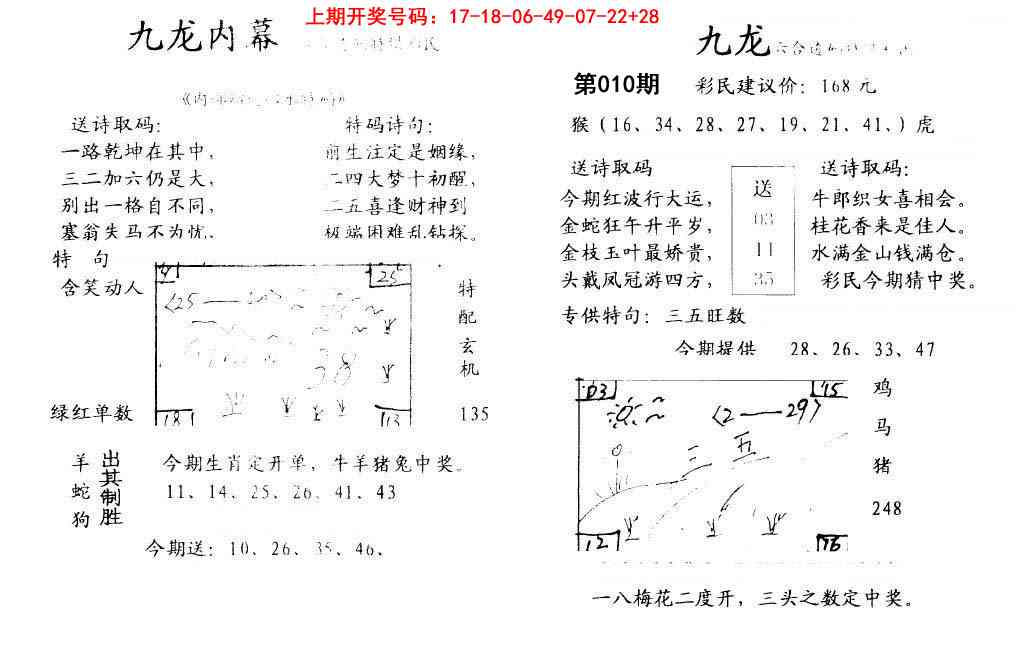 上期开奖号码：17-18-06-49-07-22+28
九龙内幕
送诗取码：
特码诗句：
一路乾坤在其中，
前生注定是姻缘，
三二加六仍是大，
二四大梦十初醒，
别出一格自不同，
二五喜逢财神到
塞翁失马不为忧.
极端困难乱钻探。
特 句
含笑动人
25
〈25—
38
特
配
玄
机
绿红单数
18
13
135
羊
蛇
狗
出其制胜
今期生肖定开单，牛羊猪兔中奖。
11、14、25、26、41、43
今期送：10、26、35、46、
九龙
第010期
彩民建议价：168 元
猴（16、34、28、27、19、21、41、）虎
送诗取码
今期红波行大运，
金蛇狂午升平岁，
金枝玉叶最娇贵，
头戴凤冠游四方，
送
03
11
35
送诗取码：
牛郎织女喜相会。
桂花香来是佳人。
水满金山钱满仓。
彩民今期猜中奖。
专供特句：三五旺数
今期提供 28、26、33、47
03
15
〈2—29〉
三 五
12
16
鸡
马
猪
248
一八梅花二度开，三头之数定中奖。